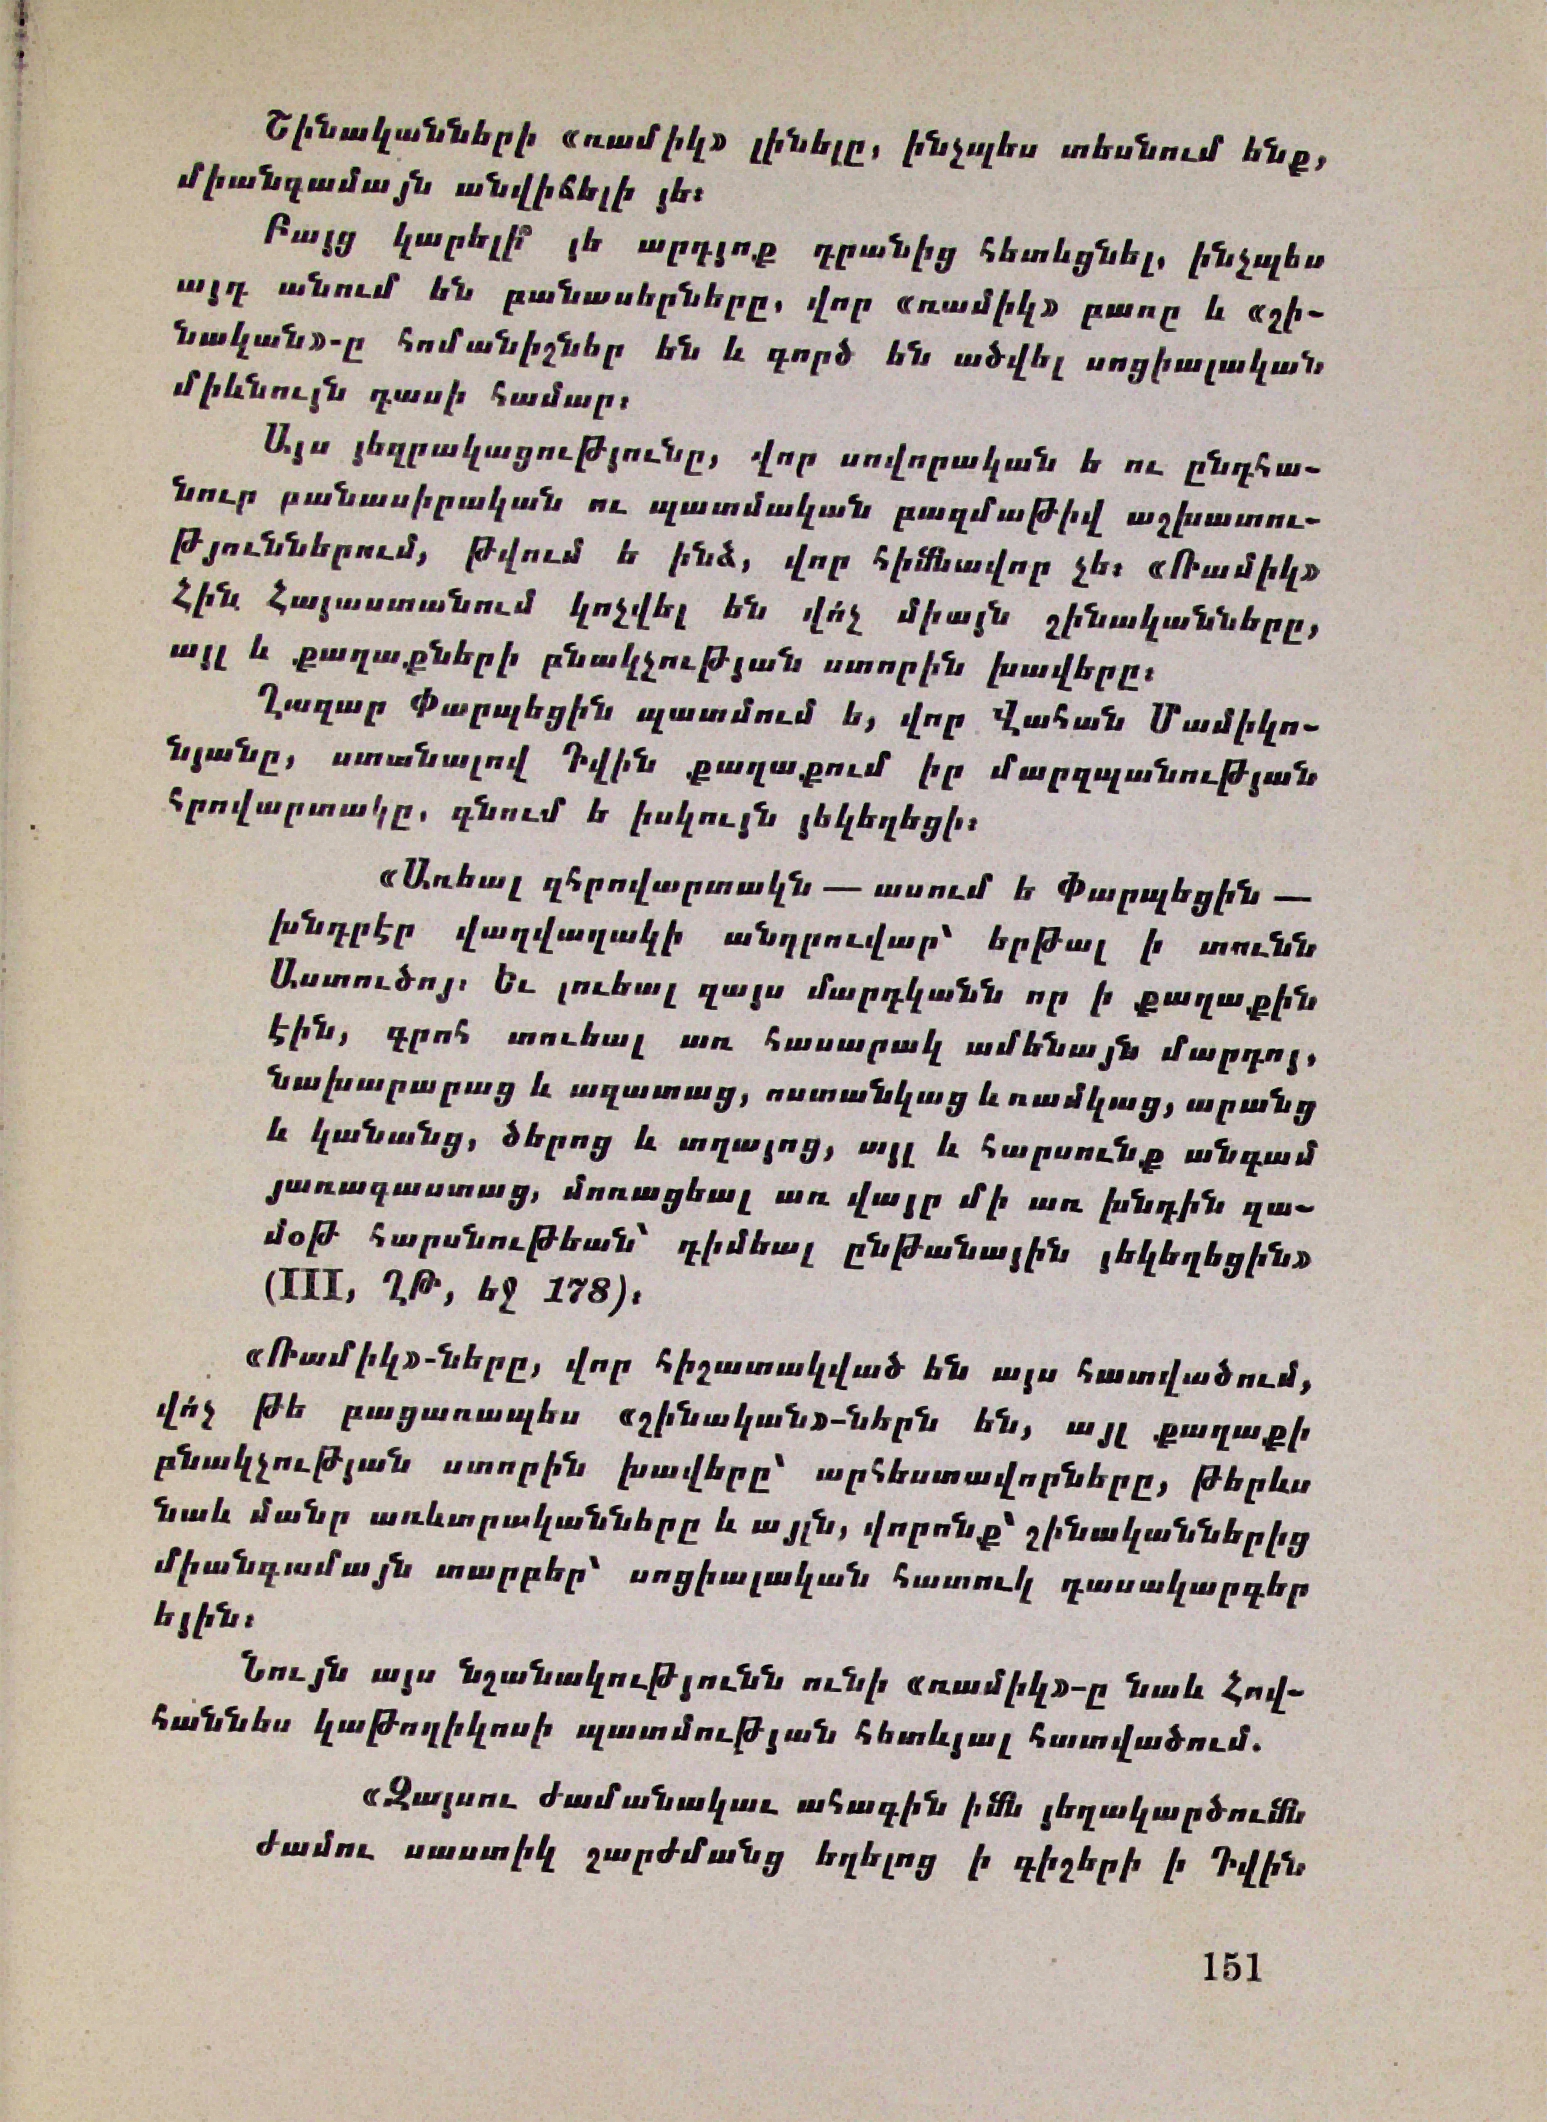 Շինականների «ռամիկ» լինելը, ինչպես տեսնում ենք,
միանգամայն անվիճելի յե։
Բայց կարելի՞ յե արդյոք դրանից հետևցնել, ինչպես
այդ անում են բանասերները, վոր «ռամիկ» բառը և «շի-
նական»-ը հոմանիշներ են և գործ են ածվել սոցիալական
միևնույն դասի համար։
Այս յեզրակացությունը, վոր սովորական ե ու ընդհա-
նուր բանասիրական ու պատմական բազմաթիվ աշխատու-
թյուններում, թվում ե ինձ, վոր հիմնավոր չե։ «Ռամիկ»
Հին Հայաստանում կոչվել են վո՛չ միայն շինականները,
այլ և քաղաքների բնակչության ստորին խավերը։
Ղազար Փարպեցին պատմում ե, վոր Վահան Մամիկո-
նյանը, ստանալով Դվին քաղաքում իր մարզպանության
հրովարտակը, գնում ե իսկույն յեկեղեցի։
«Առեալ զհրովարտակն — ասում ե Փարպեցին —
խնդրէր վաղվաղակի անդրուվար՝ երթալ ի տունն
Աստուծոյ։ Եւ լուեալ զայս մարդկանն որ ի քաղաքին
էին, գրոհ տուեալ առ հասարակ ամենայն մարդոյ,
նախարարաց և ազատաց, ոստանկաց և ռամկաց, արանց
և կանանց, ծերոց և տղայոց, այլ և հարսունք անգամ
յառագաստաց, մոռացեալ առ վայր մի առ խնդին զա-
մօթ հարսնութեան՝ դիմեալ ընթանային յեկեղեցին»
(III, ՂԹ, եջ 178)։
«Ռամիկ»-ները, վոր հիշատակված են այս հատվածում,
վո՛չ թե բացառապես «շինական»-ներն են, այլ քաղաքի
բնակչության ստորին խավերը՝ արհեստավորները, թերևս
նաև մանր առևտրականները և այլն, վորոնք՝ շինականներից
միանգամայն տարբեր՝ սոցիալական հատուկ դասակարգեր
եյին։
Նույն այս նշանակությունն ունի «ռամիկ»-ը նաև Հով-
հաննես կաթողիկոսի պատմության հետևյալ հատվածում.
«Զայսու ժամանակաւ ահագին իմն յեղակարծումն
ժամու սաստիկ շարժմանց եղելոց ի գիշերի ի Դվին
151